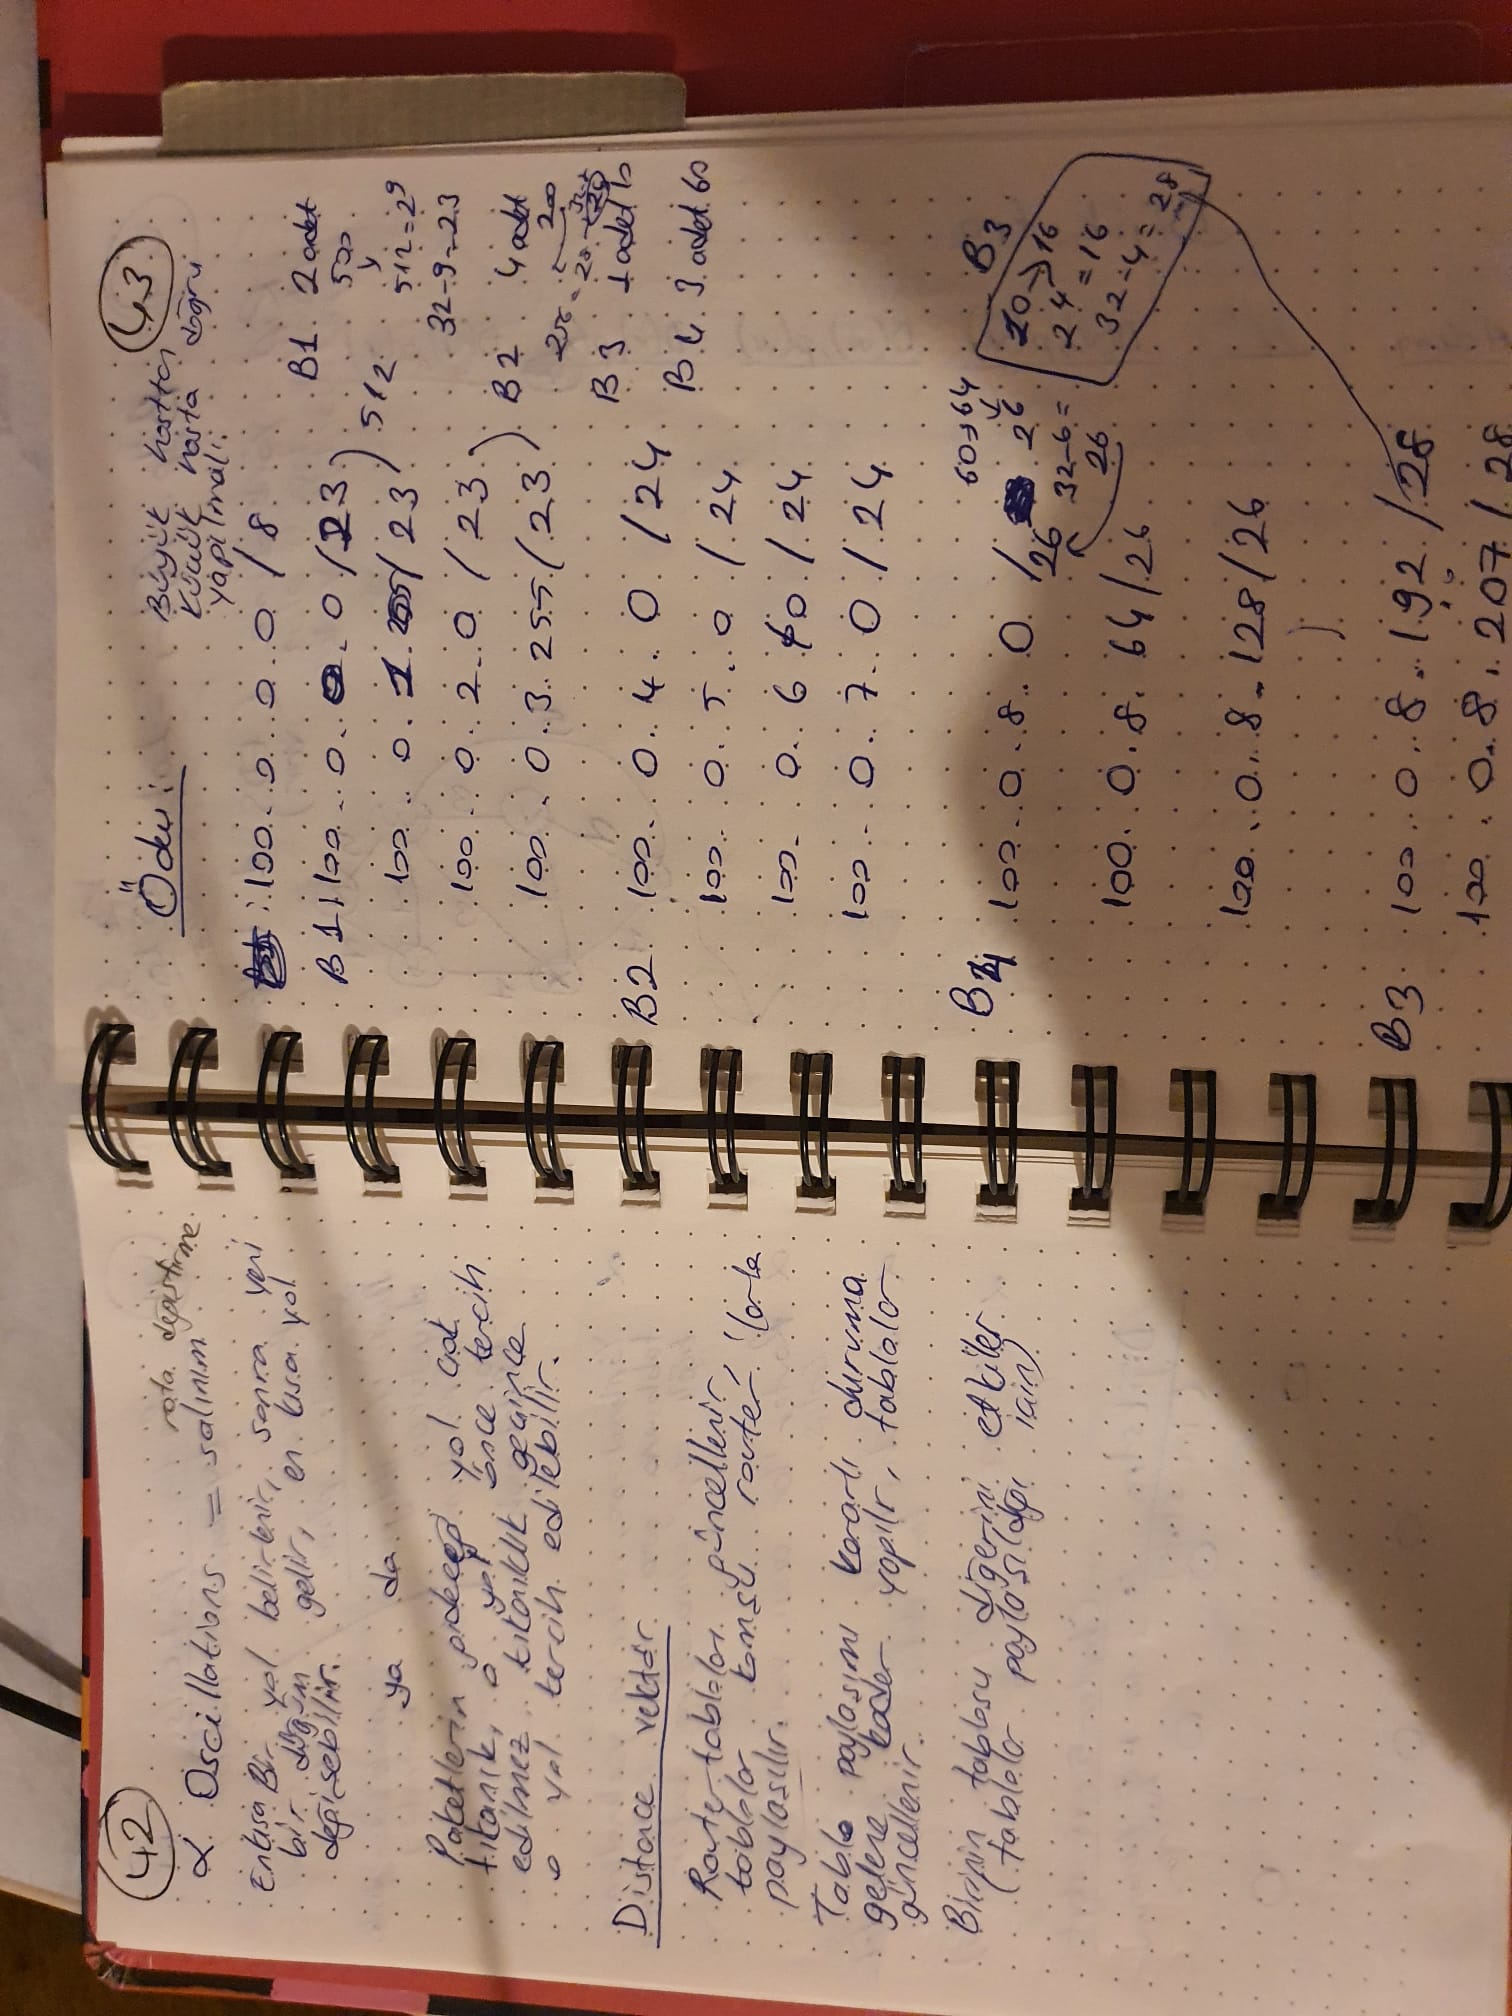 42
rota değiştirme
Oscillations = salınım
Enkısa Bir yol belirlenir, sonra yeni
bir düğüm gelir, en kısa yol
değişebilir.
ya da
Paketlerin gideceği yol çok
tıkanık, o yol önce tercih
edilmez tıkanıklık geçince
o yol tercih edilebilir.
Distance vektör
Router tabloları güncellenir,
tablolar komşu router'larla
paylaşılır.
Tablo paylaşımı kararlı duruma
gelene kadar yapılır, tablolar
güncellenir.
Birinin tablosu diğerini etkiler
(tablolar paylaşıldığı için)
43
Ödev:
Büyük hosttan
küçük hosta doğru
yapılmalı.
: 100. 0. 0. 0 / 8
B1: 100. 0. 0. 0 / 23
100. 0. 1. 255 / 23
512
100. 0. 2. 0 / 23
100. 0. 3. 255 / 23
B1 2 adet
500
512 = 2⁹
32-9=23
B2 4 adet
200
256 = 2⁸
B3 1 adet 10
B4 3 adet 60
B2 100. 0. 4. 0. / 24
100. 0. 5. 0 / 24
100. 0. 6 0 / 24
100. 0. 7. 0 / 24
B4 100. 0. 8. 0 / 26
60→64
2⁶
32-6=
26
100. 0. 8. 64 / 26
100. 0. 8. 128 / 26
B3
10→16
2⁴=16
32-4=28
B3 100. 0. 8. 192 / 28
100. 0. 8. 207 / 28